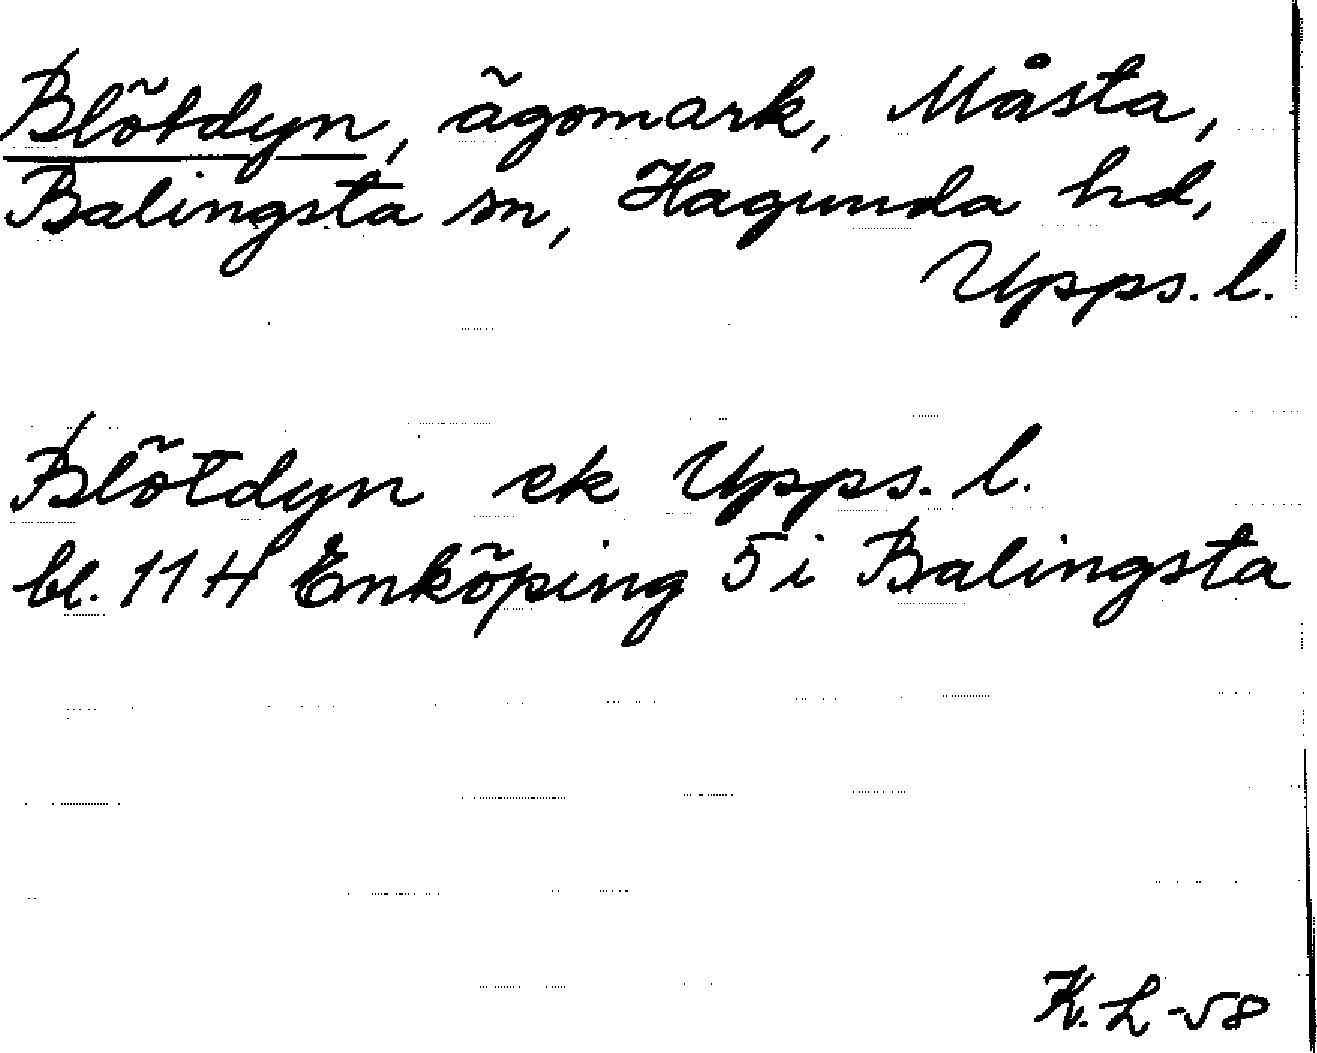 Blötdyn, ägomark, Måsta,
Balingsta sn, Hagunda hd,
Upps. l.
Blötdyn ek Upps. l.
bl. 11 H Enköping 5 i Balingsta
K. L -58